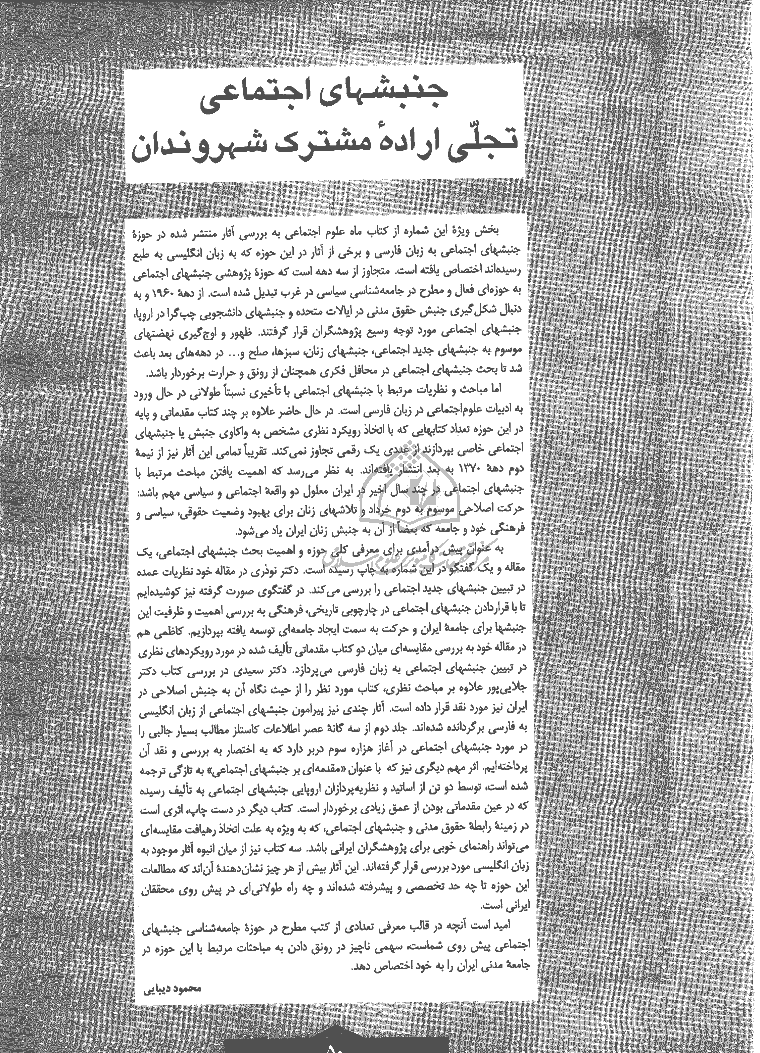 جنبشهای اجتماعی
تجلّی ارادهٔ مشترک شهروندان
بخش ویژهٔ این شماره از کتاب ماه علوم اجتماعی به بررسی آثار منتشر شده در حوزهٔ
جنبشهای اجتماعی به زبان فارسی و برخی از آثار در این حوزه که به زبان انگلیسی به طبع
رسیده‌اند اختصاص یافته است. متجاوز از سه دهه است که حوزهٔ پژوهشی جنبشهای اجتماعی
به حوزه‌ای فعال و مطرح در جامعه‌شناسی سیاسی در غرب تبدیل شده است. از دههٔ ۱۹۶۰ و به
دنبال شکل‌گیری جنبش حقوق مدنی در ایالات متحده و جنبشهای دانشجویی چپ‌گرا در اروپا،
جنبشهای اجتماعی مورد توجه وسیع پژوهشگران قرار گرفتند. ظهور و اوج‌گیری نهضتهای
موسوم به جنبشهای جدید اجتماعی، جنبشهای زنان، سبزها، صلح و... در دهه‌های بعد باعث
شد تا بحث جنبشهای اجتماعی در محافل فکری همچنان از رونق و حرارت برخوردار باشد.
اما مباحث و نظریات مرتبط با جنبشهای اجتماعی با تأخیری نسبتاً طولانی در حال ورود
به ادبیات علوم‌اجتماعی در زبان فارسی است. در حال حاضر علاوه بر چند کتاب مقدماتی و پایه
در این حوزه تعداد کتابهایی که با اتخاذ رویکرد نظری مشخص به واکاوی جنبش یا جنبشهای
اجتماعی خاصی بپردازند از عددی یک رقمی تجاوز نمی‌کند. تقریباً تمامی این آثار نیز از نیمهٔ
دوم دههٔ ۱۳۷۰ به بعد انتشار یافته‌اند. به نظر می‌رسد که اهمیت یافتن مباحث مرتبط با
جنبشهای اجتماعی در چند سال اخیر در ایران معلول دو واقعهٔ اجتماعی و سیاسی مهم باشد:
حرکت اصلاحی موسوم به دوم خرداد و تلاشهای زنان برای بهبود وضعیت حقوقی، سیاسی و
فرهنگی خود و جامعه که بعضاً از آن به جنبش زنان ایران یاد می‌شود.
به عنوان پیش درآمدی برای معرفی کلی حوزه و اهمیت بحث جنبشهای اجتماعی، یک
مقاله و یک گفتگو در این شماره به چاپ رسیده است. دکتر نوذری در مقاله خود نظریات عمده
در تبیین جنبشهای جدید اجتماعی را بررسی می‌کند. در گفتگوی صورت گرفته نیز کوشیده‌ایم
تا با قراردادن جنبشهای اجتماعی در چارچوبی تاریخی، فرهنگی به بررسی اهمیت و ظرفیت این
جنبشها برای جامعهٔ ایران و حرکت به سمت ایجاد جامعه‌ای توسعه یافته بپردازیم. کاظمی هم
در مقاله خود به بررسی مقایسه‌ای میان دو کتاب مقدماتی تألیف شده در مورد رویکردهای نظری
در تبیین جنبشهای اجتماعی به زبان فارسی می‌پردازد. دکتر سعیدی در بررسی کتاب دکتر
جلایی‌پور علاوه بر مباحث نظری، کتاب مورد نظر را از حیث نگاه آن به جنبش اصلاحی در
ایران نیز مورد نقد قرار داده است. آثار چندی نیز پیرامون جنبشهای اجتماعی از زبان انگلیسی
به فارسی برگردانده شده‌اند. جلد دوم از سه گانهٔ عصر اطلاعات کاستلز مطالب بسیار جالبی را
در مورد جنبشهای اجتماعی در آغاز هزاره سوم دربر دارد که به اختصار به بررسی و نقد آن
پرداخته‌ایم. اثر مهم دیگری نیز که با عنوان «مقدمه‌ای بر جنبشهای اجتماعی» به تازگی ترجمه
شده است، توسط دو تن از اساتید و نظریه‌پردازان اروپایی جنبشهای اجتماعی به تألیف رسیده
که در عین مقدماتی بودن از عمق زیادی برخوردار است. کتاب دیگر در دست چاپ، اثری است
در زمینهٔ رابطهٔ حقوق مدنی و جنبشهای اجتماعی، که به ویژه به علت اتخاذ رهیافت مقایسه‌ای
می‌تواند راهنمای خوبی برای پژوهشگران ایرانی باشد. سه کتاب نیز از میان انبوه آثار موجود به
زبان انگلیسی مورد بررسی قرار گرفته‌اند. این آثار بیش از هر چیز نشان‌دهندهٔ آن‌اند که مطالعات
این حوزه تا چه حد تخصصی و پیشرفته شده‌اند و چه راه طولانی‌ای در پیش روی محققان
ایرانی است.
امید است آنچه در قالب معرفی تعدادی از کتب مطرح در حوزهٔ جامعه‌شناسی جنبشهای
اجتماعی پیش روی شماست، سهمی ناچیز در رونق دادن به مباحثات مرتبط با این حوزه در
جامعهٔ مدنی ایران را به خود اختصاص دهد.
محمود دیبایی